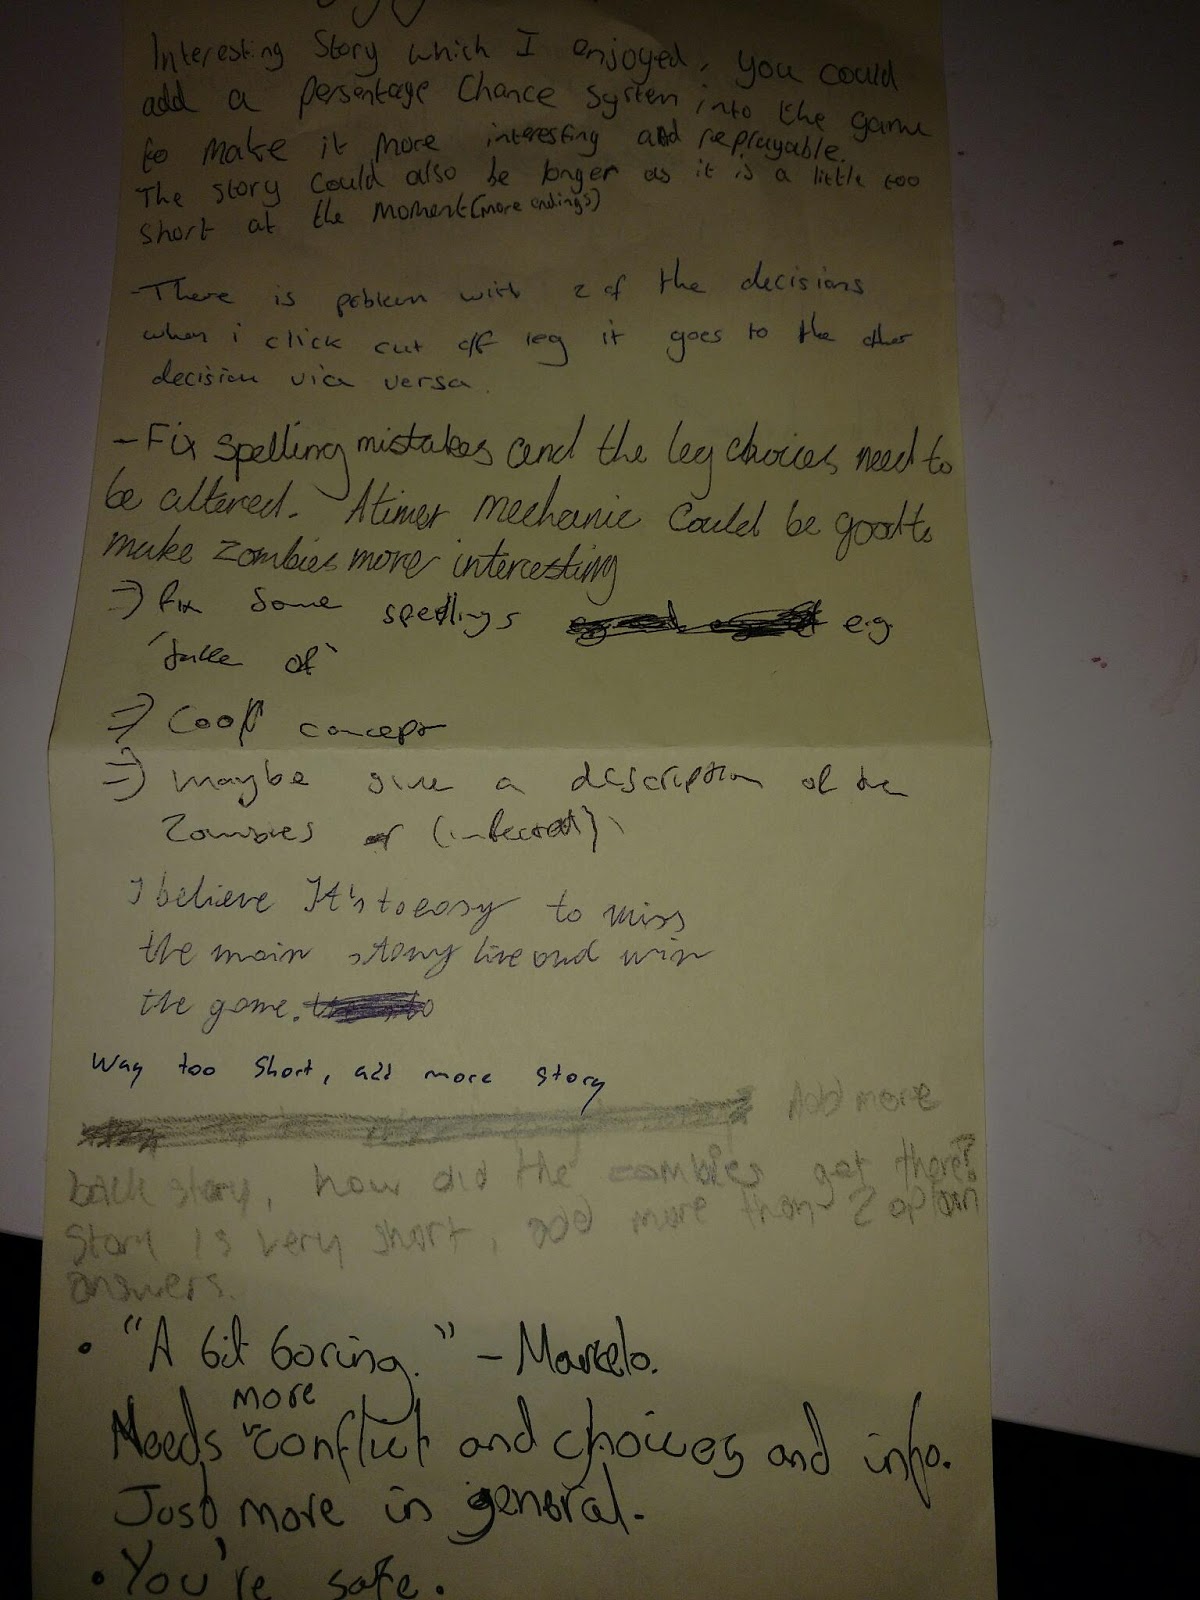 Interesting Story which I enjoyed, you could
add a persentage Chance System into the game
to make it more interesting and replayable.
The story could also be longer as it is a little too
short at the moment (more endings)
- There is poblem with 2 of the decisions
when i click cut off leg it goes to the other
decision vica versa.
- Fix spelling mistakes and the leg choices need to
be altered. A timer mechanic could be good to
make zombies more interesting
=> fix some spellings e.g.
=> Cool concept
=> maybe give a description of the
Zombies (infected)
I believe It's to easy to miss
the main story line and win
the game.
Way too short, add more story
Add more
back story, how did the zombies get there?
Story is very short, add more than 2 option
answers.
• "A bit boring." - Marcelo.
more
Needs conflict and choices and info.
Just more in general.
• You're safe.